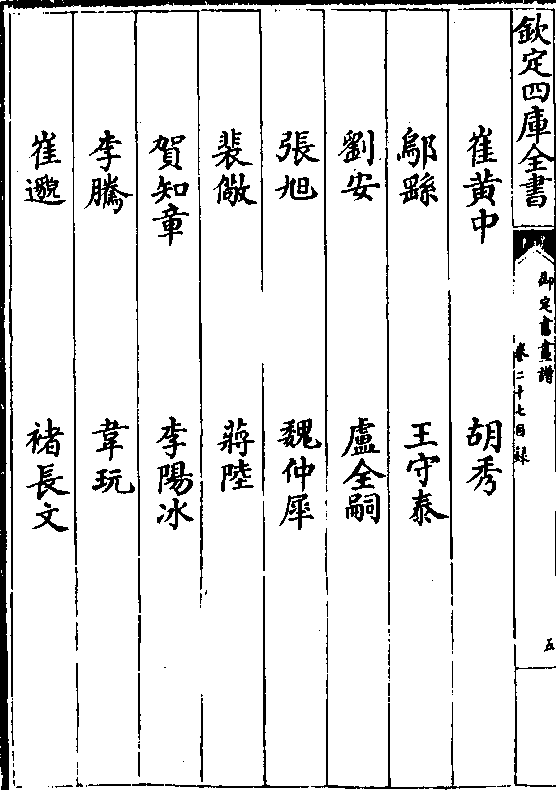 欽定四庫全書
御定書畫譜
卷二十七目錄
五
崔黃中 胡秀
鄔繇 王守泰
劉安 盧全嗣
張旭 魏仲犀
裴儆 蔣陸
賀知章 李陽冰
李騰 韋玩
崔邈 褚長文